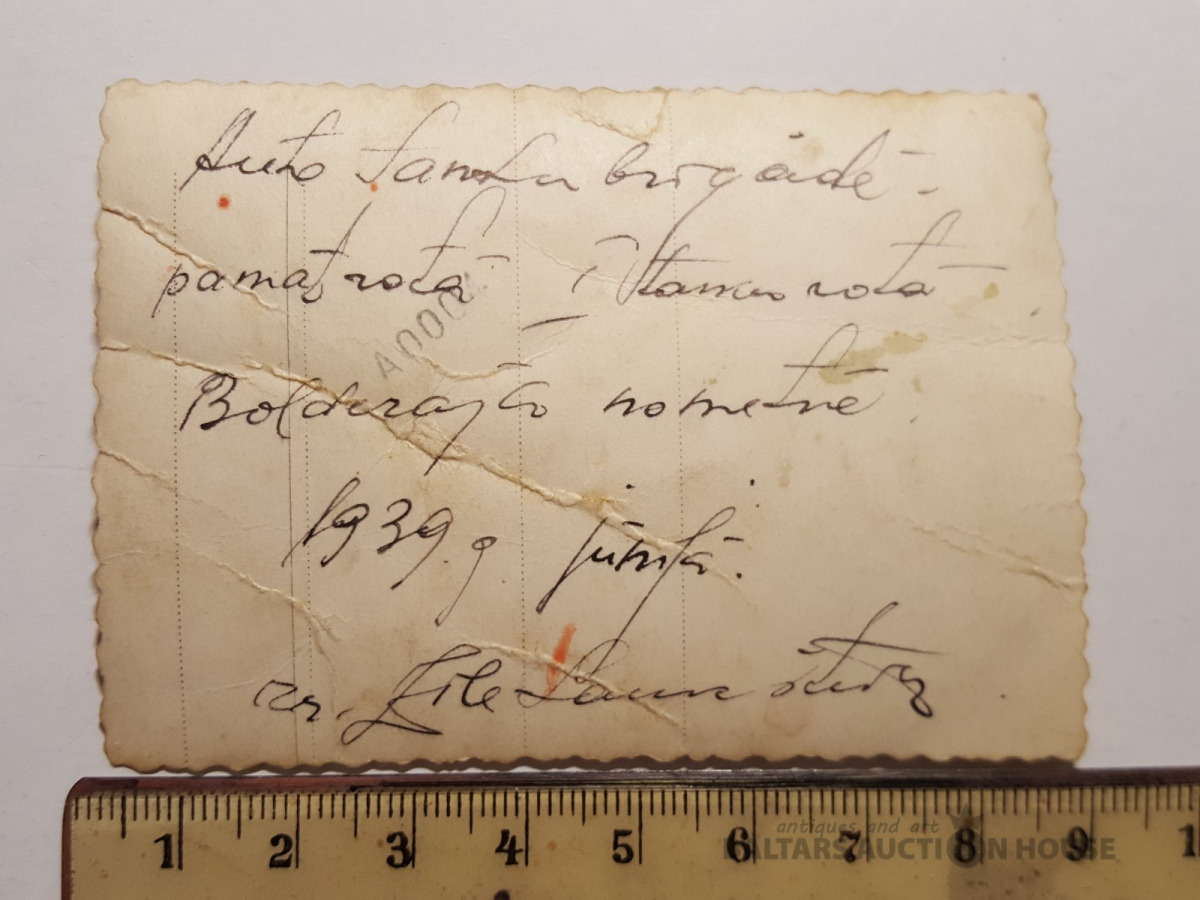 Auto tanku brigādē -
pamatrotā tanku rotā
Bolderajās nometnē.
1939. g. jūnijā.
A000
1 2 3 4 5 6 7 8 9 1
antiques and art
BALTARS AUCTION HOUSE